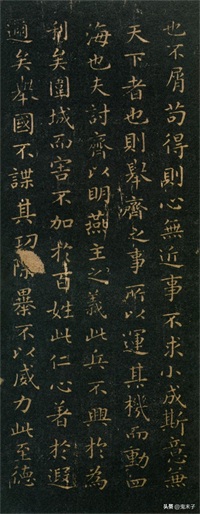 也不屑苟得則心無近事不求小成斯意兼
天下者也則舉齊之事所以運其機而動四
海也夫討齊以明燕主之義此兵不興於為
利矣圍城而害不加於百姓此仁心著於遐
邇矣舉國不謀其功除暴不以威力此至德
头条